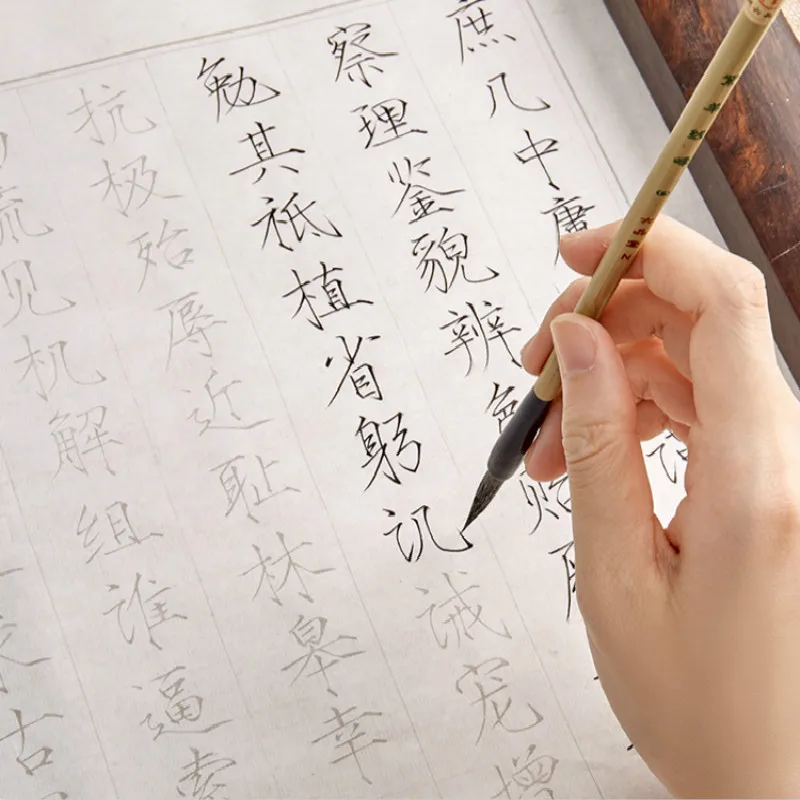 庶几中庸
察理鉴貌辨色贻
勉其祗植省躬讥诫宠增
抗极殆辱近耻林皋幸
疏见机解组谁逼索
古